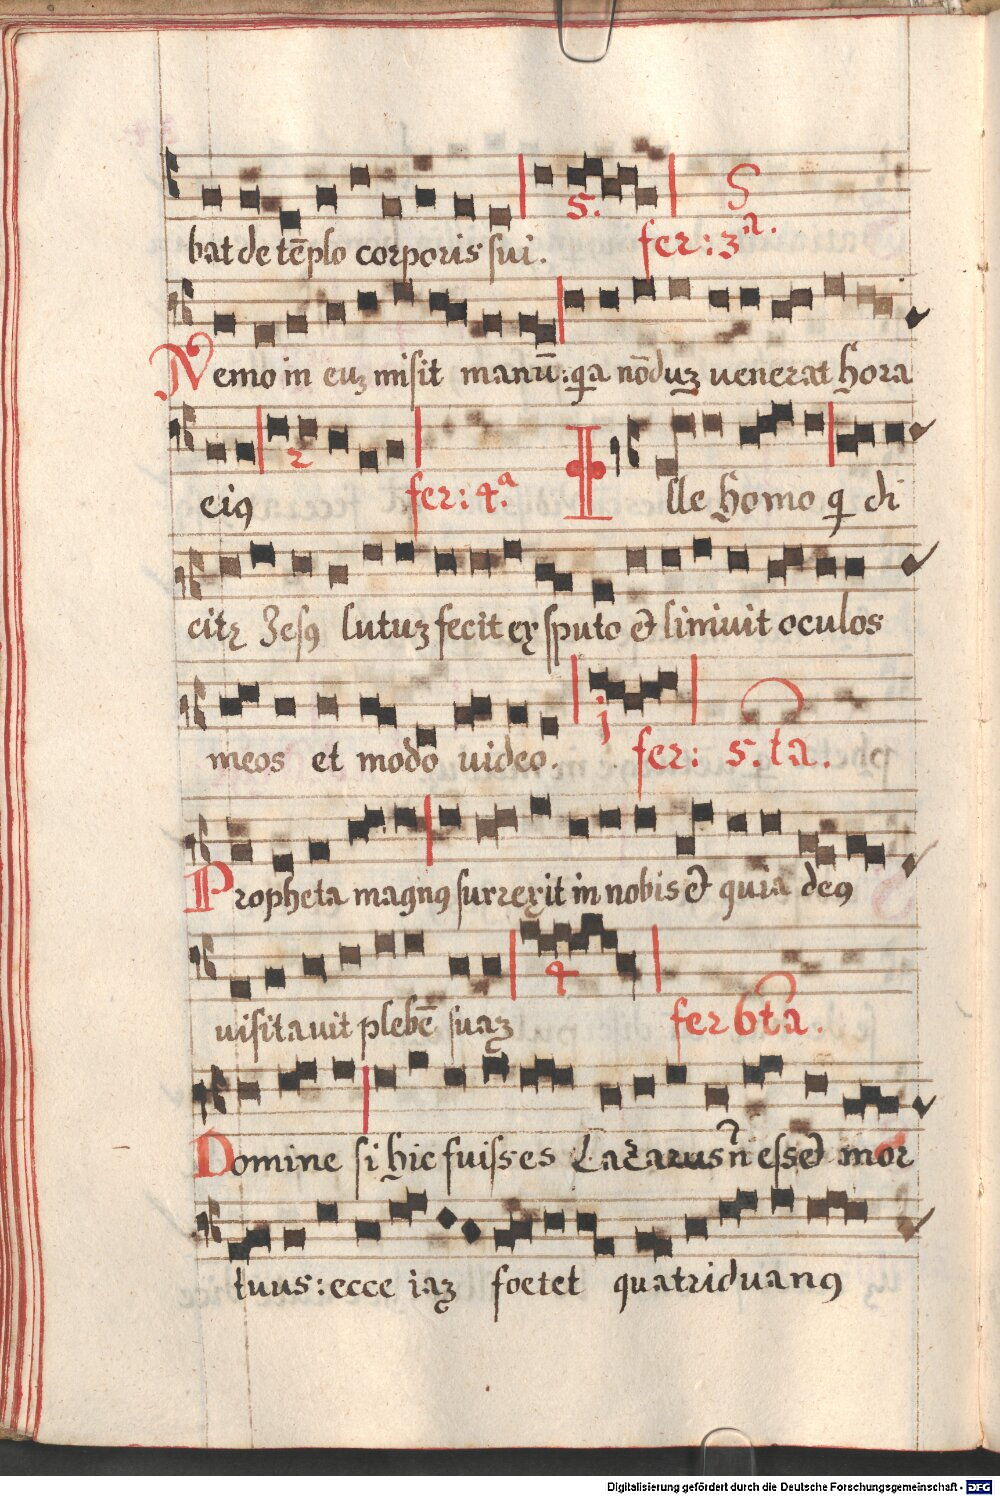 bat de tēplo corporis sui. 5. fer: 3ª.
Nemo in euʒ misit manū: qa nōduʒ uenerat hora
eiꝯ 2 fer: 4.ª Ille homo q di
citꝛ Jesꝯ lutuʒ fecit ex sputo et liniuit oculos
meos et modo uideo. j fer: 5.ta.
Propheta magnꝯ surrexit in nobis et quia deꝯ
uisitauit plebē suaʒ 4 fer 6ta.
Domine si hic fuisses Lazarus n̄ esset mor
tuus: ecce iaʒ foetet quatriduanꝯ
Digitalisierung gefördert durch die Deutsche Forschungsgemeinschaft - DFG